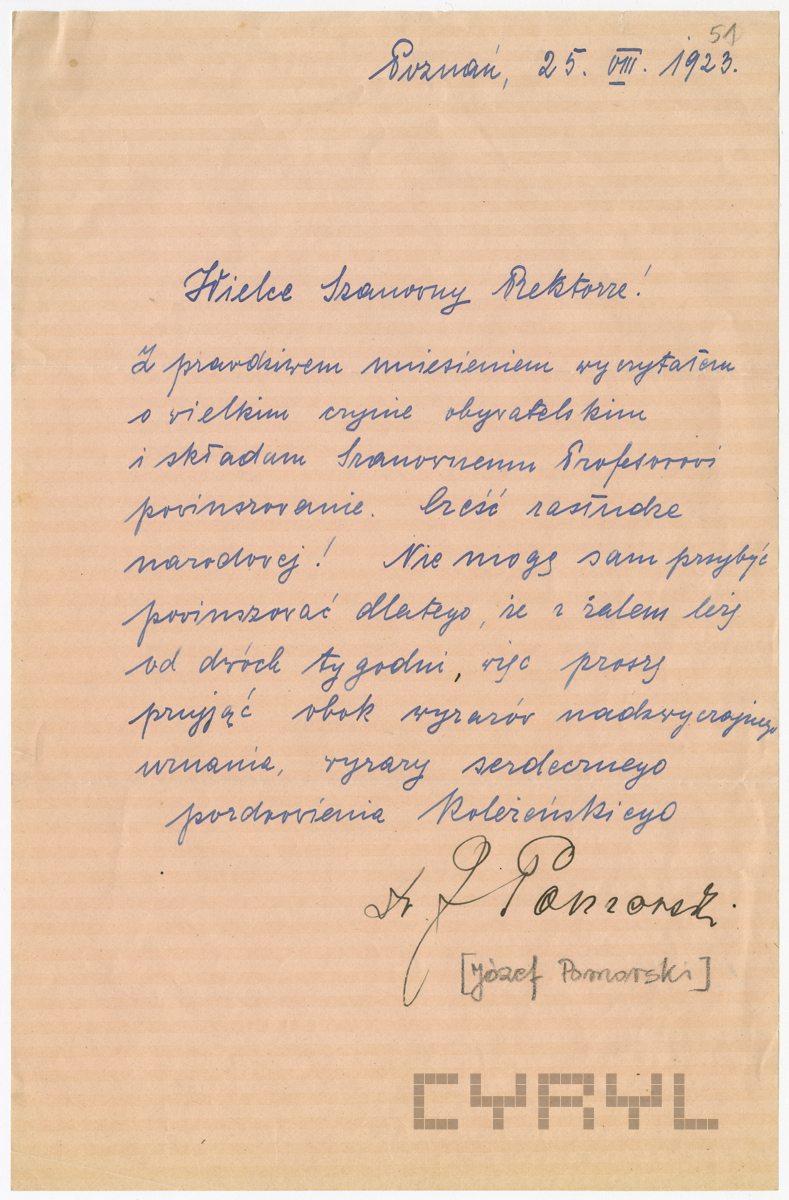 51
Poznań, 25. VIII. 1923.
Wielce Szanowny Rektorze!
Z prawdziwem uniesieniem wyczytałem
o wielkim czynie obywatelskim
i składam Szanownemu Profesorowi
powinszowanie. Cześć zasłudze
narodowej! Nie mogę sam przybyć
powinszować dlatego, że z żalem leżę
od dwóch tygodni, więc proszę
przyjąć obok wyrazów nadzwyczajnego
uznania, wyrazy serdecznego
pozdrowienia koleżeńskiego
Dr. J. Pomorski.
[Józef Pomorski]
CYRYL